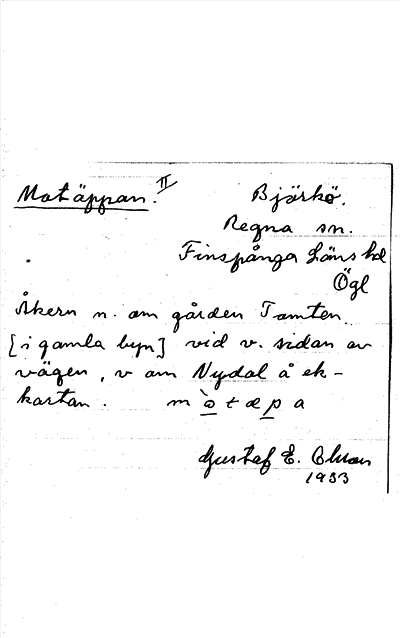 Motäppan. II
Björkö.
Regna sn.
Finspånga Läns hd
Ögl
Åkern n. om gården Tomten
[i gamla byn] vid v. sidan av
vägen, v om Nydal å ek-
kartan. m ò t æ p a
Gustaf E.
1933